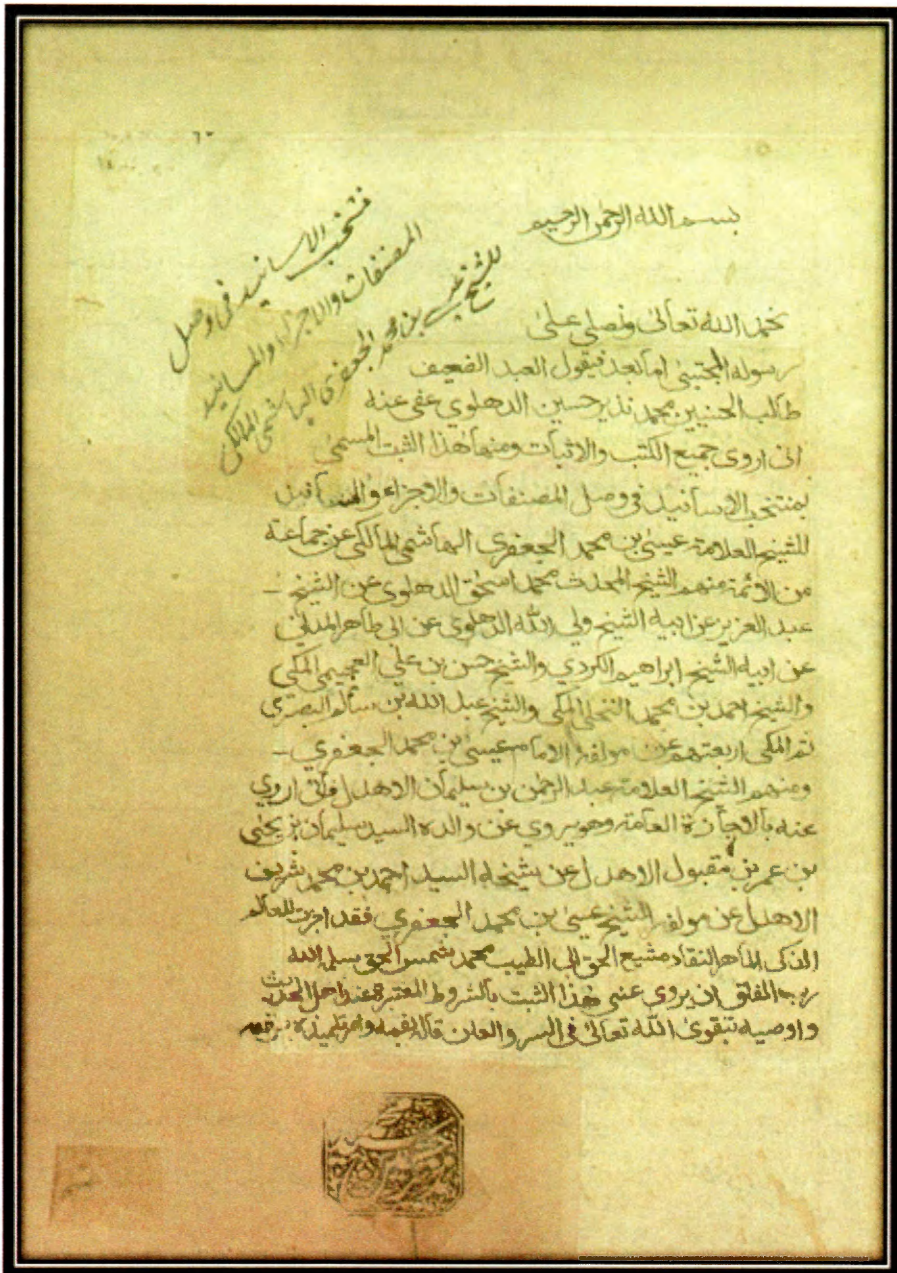 بسم الله الرحمن الرحيم
منتخب الاسانيد فى وصل
المصنفات والاجزاء والمسانيد
للشيخ عيسى بن محمد الجعفرى الهاشمى المالكى
نحمد الله تعالى ونصلي على
رسوله المجتبى اما بعد فيقول العبد الضعيف
طالب الحسنيين محمد نذير حسين الدهلوي عفى عنه
انى اروى جميع الكتب والاثبات ومنها هذا الثبت المسمى
بمنتخب الاسانيد فى وصل المصنفات والاجزاء والمسانيد
للشيخ العلامة عيسى بن محمد الجعفري الهاشمي المالكي عن جماعة
من الائمة منهم الشيخ المحدث محمد اسحق الدهلوى عن الشيخ
عبد العزيز عن ابيه الشيخ ولي الله الدهلوي عن ابى طاهر المدنى
عن ابيه الشيخ ابراهيم الكردي والشيخ حسن بن علي العجيمي المكي
والشيخ احمد بن محمد النخلى المكى والشيخ عبد الله بن سالم البصرى
ثم المكى اربعتهم عن مولفه الامام عيسى بن محمد الجعفري
ومنهم الشيخ العلامة عبد الرحمن بن سليمان الاهدل فانى اروي
عنه بالاجازة العامة وهو يروي عن والده السيد سليمان بن يحيى
بن عمر بن مقبول الاهدل عن شيخه السيد احمد بن محمد شريف
الاهدل عن مولفه الشيخ عيسى بن محمد الجعفري فقد اجزت للعالم
الذكى الماهر النقاد مشيع الحق ابى الطيب محمد شمس الحق سلمه الله
رب الفلق ان يروي عنى هذا الثبت بالشروط المعتبرة عند اهل الحديث
واوصيه بتقوى الله تعالى فى السر والعلن قاله بفمه وامر تلميذه برقمه